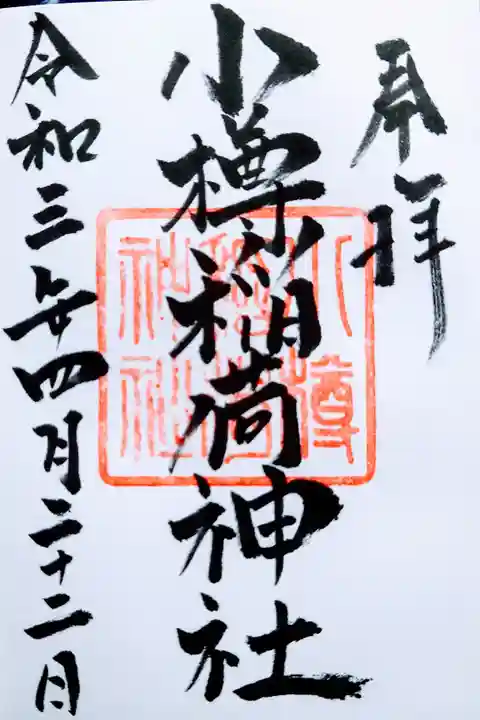 奉拝
小樽稲荷神社
小樽稲荷神社
令和三年四月二十二日